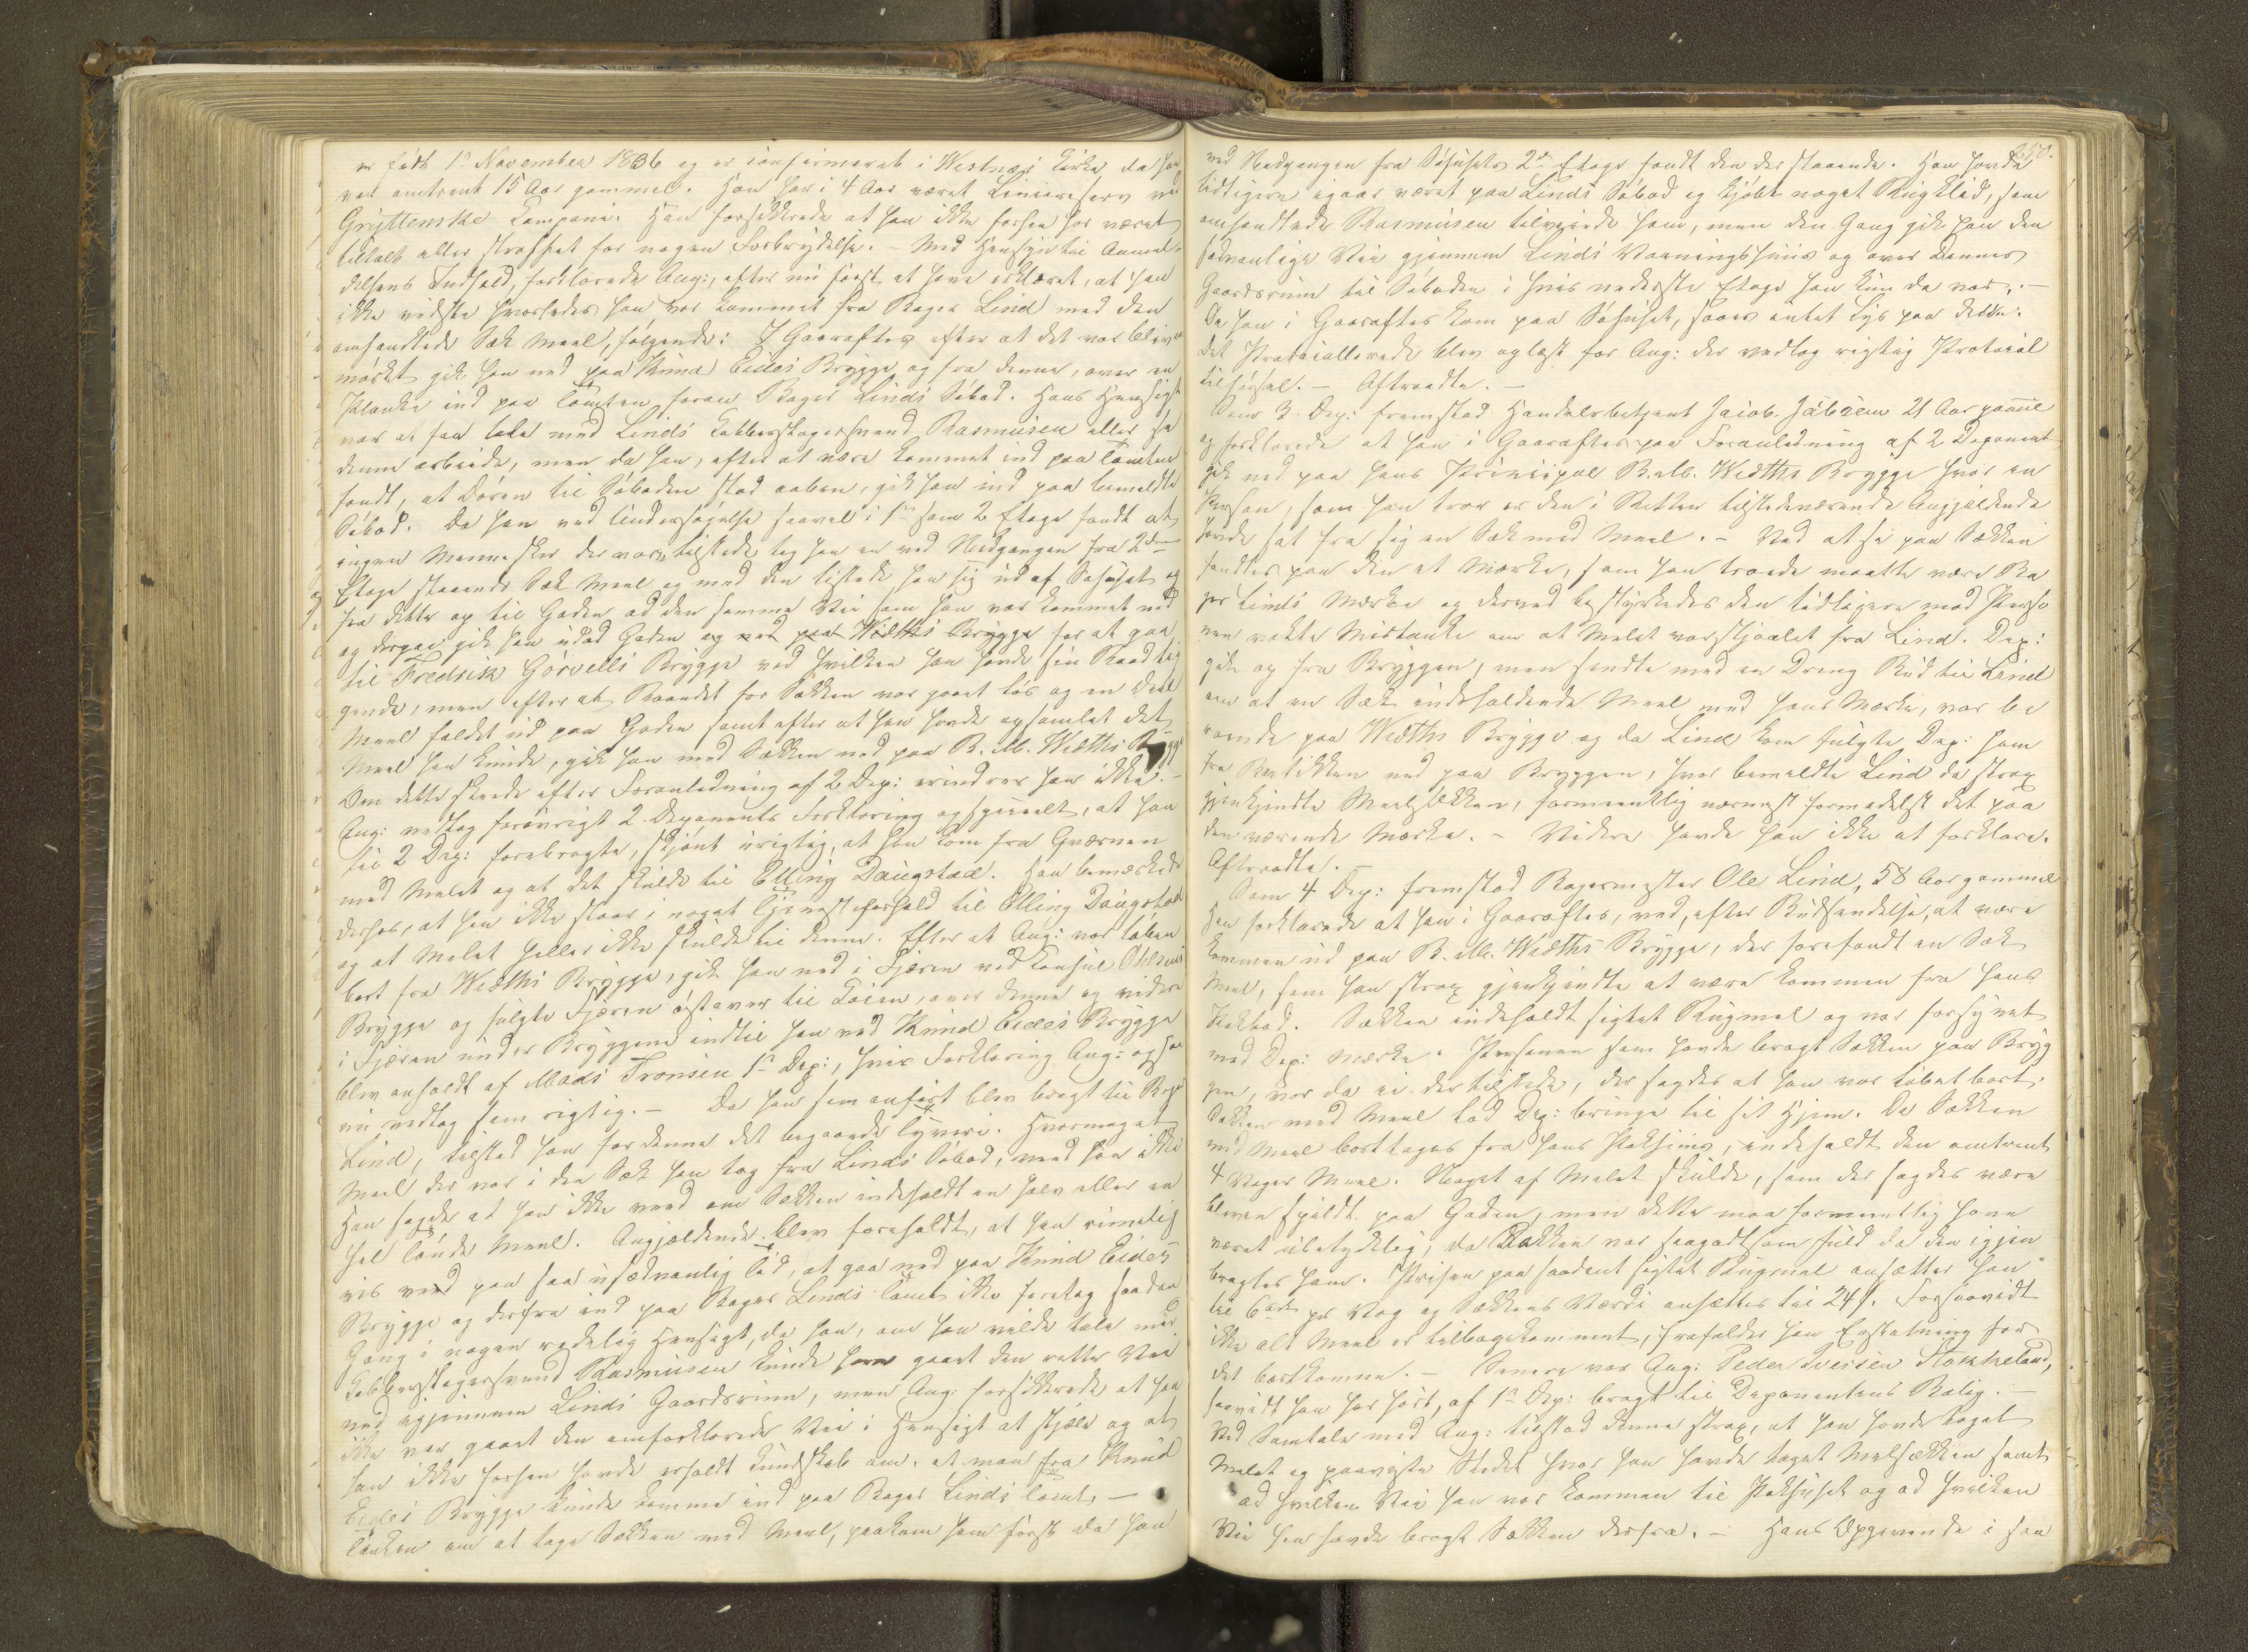 er født 1ste November 1836 og er confirmeret i Westnæs Kirke da han
var omtrent 15 Aar gammel. Han har i 4 Aar været Liniereserv ved
Gryttenske Compani. Han forsikkrede at han ikke forhen har været
tiltalt eller straffet for nogen Forbrydelse. – Med Hensyn til Anmel-
delsens Indhold, forklarede Ang:, efter nu først at have erklæret, at han
ikke vidste hvorledes han var kommet fra Bager Lind med den
omhandlede Sæk Meel, følgende: I Gaaraftes efter at det var blevet
mørkt gik han ned paa Knud Eides Brygge og fra denne, over en
Planke ind paa Tomten foran Bager Linds Søbod. Hans Hensigt
var at faa tale med Linds Kobberslagersvend Rasmusen eller se
denne arbeide, men da han, efter at være kommet ind paa Tomten
fandt, at Døren til Søboden stod aaben, gik han ind paa bemeldte
Søbod. Da han ved Undersøgelse saavel i 1ste som 2 Etage fandt at
ingen Mennesker der vare tilstede tog han en ved Nedgangen fra 2den
Etage staaende Sæk Meel og med den listede han sig ud af Søhuset og
fra dette op til Gaden ad den samme Vei som han var kommet ned
og derpaa gik han udad Gaden og ned paa Wiæths Brygge for at gaa
til Fredrik Görvells Brygge ved hvilken han havde sin Baad lig
gende, men efter at Baandet for Sækken var gaaet løs og en Deel
Meel faldet ud paa Gaden samt efter at han havde opsamlet det
Meel han kunde, gik han med Sækken ned paa B. M. Wiæths Brygge
Om dette skeede efter Foranledning af 2 Dep: erindrer han ikke. –
Ang: vedtog forøvrigt 2 Deponents Forklaring og specielt, at han
til 2 Dep: forebragte, skjønt urigtig, at han kom fra Qværnen
med Melet og at det skulde til Elling Daugstad. Han bemærkede
derhos, at han ikke staar i noget Tjenesteforhold til Elling Daugstad
og at Melet heller ikke skulde til denne. Efter at Ang: var løben
bort fra Wiæths Brygge, gik han ned i Fjæren ved Consul Ohlsens
Brygge og fulgte Fjæren østover til Toien, over denne og videre
i Fjæren under Bryggene indtil han ved Knud Eides Brygge
blev anholdt af Mads Tronsen 1ste Dep:, hvis Forklaring Ang: ogsaa
nu vedtog som rigtig. – Da han som anført blev bragt til Bager
Lind, tilstod han for denne det begaaede Tyveri. Hvormeget
Meel der var i den Sæk han tog fra Linds Søbod, veed han ikke
Han sagde at han ikke veed om Sækken indeholdt en halv eller en
hel Tønde Meel. Angjældende blev foreholdt, at han rimelig
vis ved paa saa usædvanlig Tid, at gaa ned paa Knud Eides
Brygge og derfra ind paa Bager Linds Tomt ikke foretog saadan
Gang i nogen redelig Hensigt, da han, om han vilde tale med
Kobberslagersvend Rasmusen kunde have gaaet den rette Vei
ned igjennem Linds Gaardsrum, men Ang. forsikkrede at han
ikke var gaaet den omforklarede Vei i Hensigt at stjæle og at
han ikke forhen havde erholdt Kundskab om, at man fra Knud
Eides Brygge kunde komme ind paa Bager Linds Tomt. –
Tanken om at tage Sækken med Meel, paakom ham først da han
350.
ved Nedgangen fra Søhusets 2den Etage fandt den der staaende. Han havde
tidligere igaar været paa Linds Søbod og kjøbt noget Rugklid, som
omhandlede Rasmusen tilveiede ham, men den Gang gik han den
sædvanlige Vei gjennem Linds Vaaningshuus og over Dennes
Gaardsrum til Søboden i hvis nederste Etage han kun da var. –
Da han i Gaaraftes kom paa Søhuset, saaes intet Lys paa dette.
Det Protocollerede blev oplæst for Ang: der vedtog rigtig Protocol
tilførsel. – Aftraadte. –
Som 3. Dep: fremstod Handelsbetjent Jacob Jübsen 21 Aar gammel
og forklarede at han i Gaaraftes paa Foranledning af 2 Deponent
gik ned paa hans Principal B. M. Wiæths Brygge hvor en
Person, som han tror er den i Retten tilstedeværende Angjældende
havde sat fra sig en Sæk med Meel. – Ved at se paa Sækken
fandtes paa den et Mærke, som han troede maatte være Ba
ger Linds Mærke og derved bestyrkedes den tidligere mod Perso
nen vakte Mistanke om at Melet var stjaalet fra Lind. Dep:
gik op fra Bryggen, men sendte med en Dreng Bud til Lind
om at en Sæk indeholdende Meel med hans Mærke, var be
roende paa Wiæths Brygge og da Lind kom fulgte Dep: ham
fra Butikken ned paa Bryggen, hvor bemeldte Lind da strax
gjenkjendte Meelsækken, formeentlig nærmest formedelst det paa
den værende Mærke. – Videre havde han ikke at forklare.
Aftraadte. –
Som 4 Dep: fremstod Bagermester Ole Lind, 58 Aar gammel
Han forklarede at han i Gaaraftes, ved, efter Budsendelse, at være
kommen ud paa B. M. Wiæths Brygge, der forefandt en Sæk
Meel, som han strax gjenkjendte at være kommen fra hans
Pakbod. Sækken indeholdt sigtet Rugmel og var forsynet
med Dep: Mærke. Personen som havde bragt Sækken paa Bryg
gen, var da ei der tilstede, der sagdes at han var løbet bort.
Sækken med Meel lod Dep: bringe til sit Hjem. Da Sækken
med Meel borttoges fra hans Pakhuus, indeholdt den omtrent
4 Voger Meel. Noget af Melet skulde, som der sagdes være
bleven spildt paa Gaden, men dette maa formeentlig have
været ubetydelig, da Sækken var saagodtsom fuld da den igjen
bragtes ham. Prisen paa saadant sigtet Rugmel ansætter han
til 6 ort pr Vog og Sækkens Værdi ansættes til 24 s. Forsaavidt
ikke alt Meel er tilbagekommet, frafalder han Erstatning for
det bortkomne. – Senere var Ang: Peder Iversen Stokkeland,
saavidt han har hørt, af 1ste Dep: bragt til Deponentens Bolig. –
Ved Samtale med Ang: tilstod denne strax, at han havde taget
Melet og paaviste Stedet hvor han havde taget Melsækken samt
ad hvilken Vei han var kommen til Pakhuset og ad hvilken
Vei han havde bragt Sækken derfra. – Hans Opgivende i saa